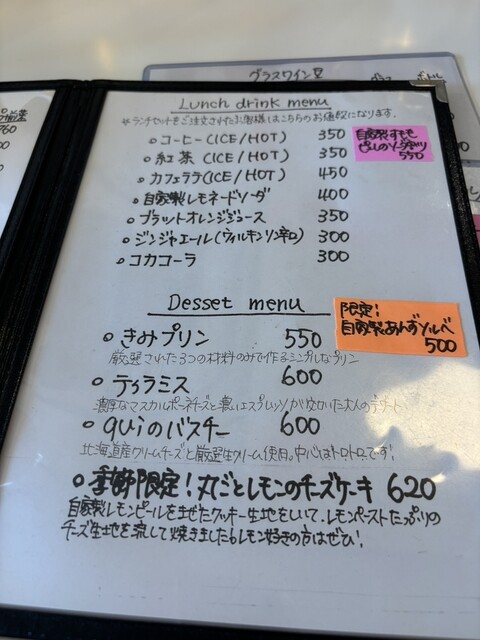 グラスワイン
Lunch drink menu
※ランチセットをご注文されたお客様はこちらのお値段になります。
コーヒー(ICE/HOT) 350
紅茶(ICE/HOT) 350
カフェラテ(ICE/HOT) 450
自家製レモネードソーダ 400
ブラッドオレンジジュース 350
ジンジャエール(ウィルキンソン辛口) 300
コカコーラ 300
自家製すもも
550
Desset menu
きみプリン 550
厳選された3つの材料のみで作るシンプルなプリン
ティラミス 600
濃厚なマスカルポーネチーズと濃いエスプレッソが効いた大人のデザート
quiのバスチー 600
北海道産クリームチーズと厳選生クリーム使用。中心はトロトロです!
季節限定!丸ごとレモンのチーズケーキ 620
自家製レモンピールをまぜたクッキー生地をしいて、レモンペーストたっぷりの
チーズ生地を流して焼きました。レモン好きの方はぜひ!
限定!
自家製あんずソルベ
500